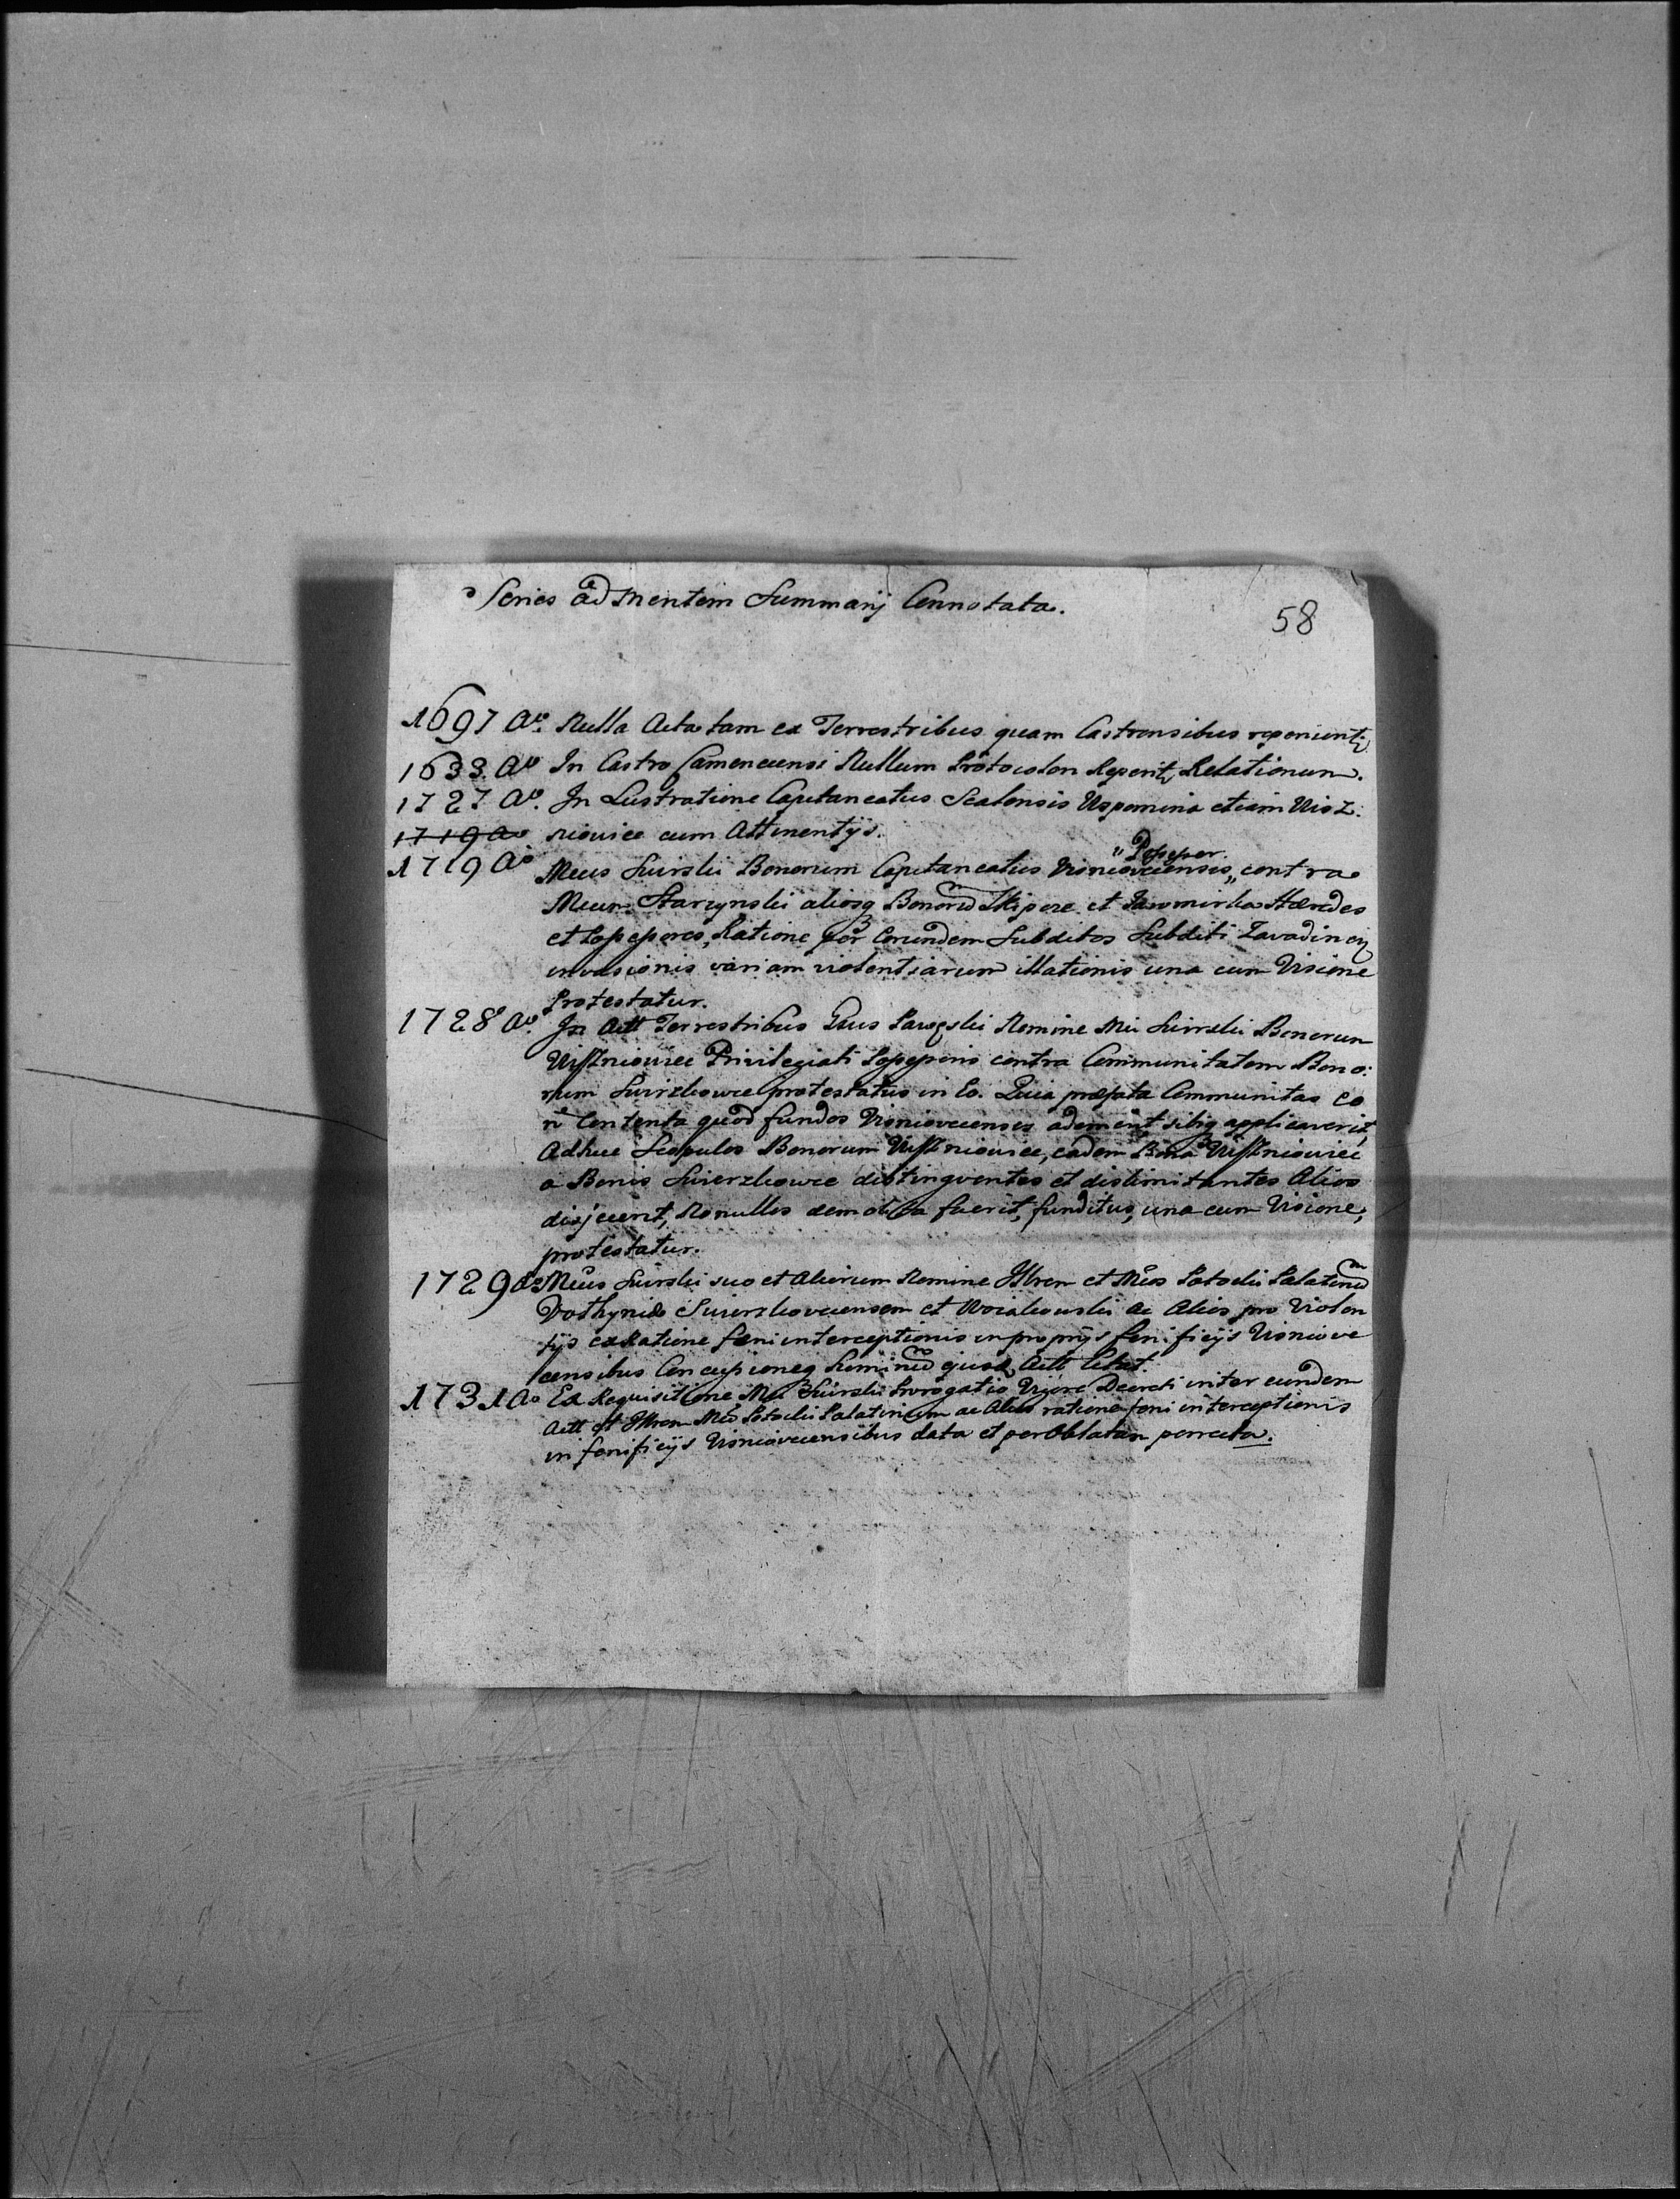 Series ad mentem Summarij Connotata.
58
1697 Ao. Nulla Acta tam ex Terrestribus quam Castrensibus reperiunt
1633. Ao In Castro Camenecensi Nullum Protocolon Reperit, Relationum.
1727 Ao. In Lustratione Capitaneatus Scalensis Wspomina etiam Wisz:
1719 ao niowce cum Attinentijs.
1719 Ao Meus Swirski Bonorum Capitaneatus Visniovecensis „ contra
„ Possessor.
Meum Starzynski aliosq Bonorum et Jaromirka Hæredes
et Possessores, Ratione per Eorundem Subditos Subditi Zavadincij
invasionis variam violentiarum illationis una cum Visione
Protestatur.
1728 Ao. In Actt Terrestribus Gnus Nomine Mci Swirski Bonorum
Wissniowiec Privilegiati Possessoris contra Communitatem Bono:
rum Swirzkowce protestatus in Eo. Quia præfata Communitas eo
n Contenta quod fundos Visniovecenses ademerit sibiq applicaverit,
Adhuc Scopulos Bonorum Wissniowiec, eadem Bona Wissniowiec
a Bonis Swierzkowce distingventes et dislimitantes Alios
disjecerit, Nonullos demolita fuerit, funditus, una cum Visione,
protestatur.
1729 Ao Meus Swirski suo et Aliorum Nomine Illrem et Meos Potocki Palatinum
Volhyniæ Swierzkovecensem et ac Alios pro Violen
tijs ex Ratione fæni interceptionis in proprijs fenificijs Visniove
censibus ejusd, Actt Citat.
1731 Ao Ex Requisitione Mci Swirski Prorogatio Vigore Decreti inter eundem
Actt et Illrem Meum Potocki Palatinum ac Alios ratione feni interceptionis
in fenificijs Visniovecensibus data et per Oblatam porrecta.